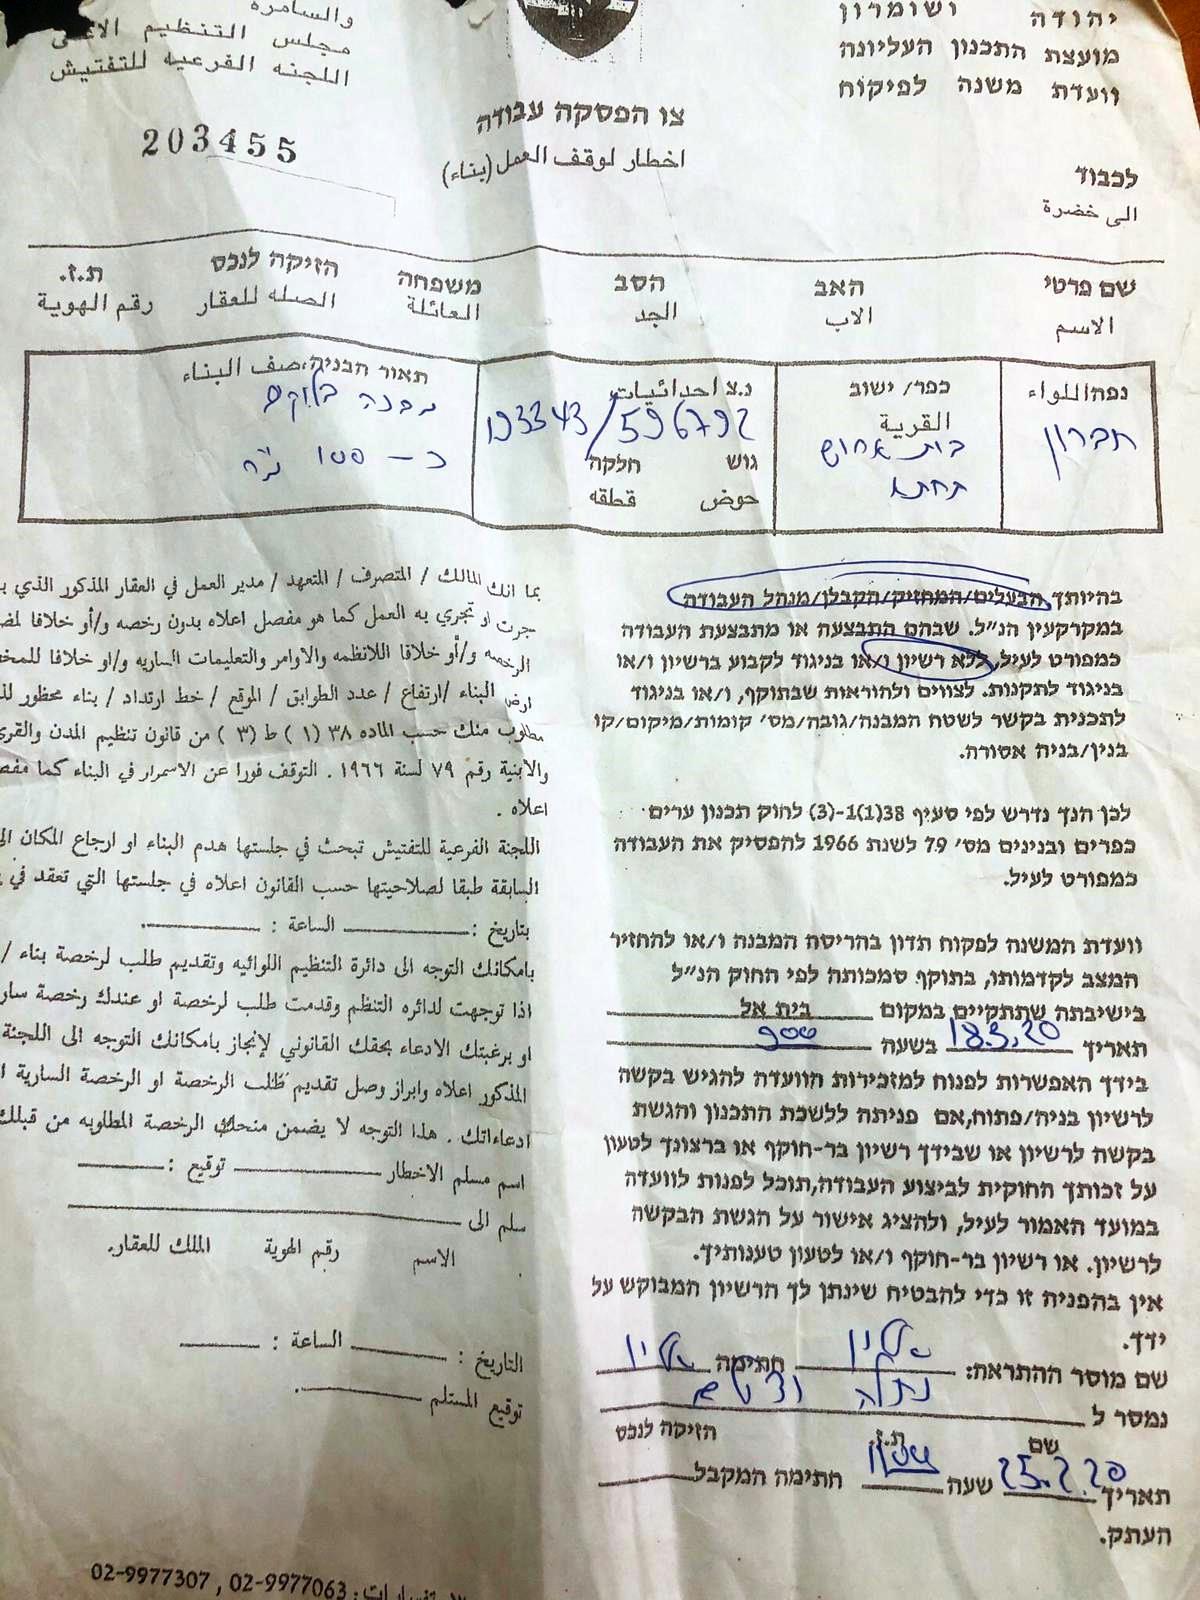 יהודה ושומרון
מועצת התכנון העליונה
וועדת משנה לפיקוח
والسامره
مجلس التنظيم
اللجنه الفرعيه للتفتيش
צו הפסקה עבודה
اخطار لوقف العمل (بناء)
203455
לכבוד
الى خضرة
שם פרטי האב הסב משפחה הזיקה לנכס ת.ז.
الاسم الاب الجد العائلة الصله للعقار رقم الهوية
נפה اللواء
חברון
כפר/ ישוב
القرية
בית
תחתא
נ.צ احداثيات
193343/596792
גוש חלקה
حوض قطقه
תאור הבניה، صف البناء
מבנה בלוקים
כ - 100 מ"ר
בהיותך הבעלים/המחזיק/הקבלן/מנהל העבודה
במקרקעין הנ"ל. שבהם התבצעה או מתבצעת העבודה
כמפורט לעיל, ללא רשיון ו/או בניגוד לקבוע ברשיון ו/או
בניגוד לתקנות. לצווים ולהוראות שבתוקף, ו/או בניגוד
לתכנית בקשר לשטח המבנה/גובה/מס' קומות/מיקום/קו
בנין/בניה אסורה.
לכן הנך נדרש לפי סעיף 38(1)1-(3) לחוק תכנון ערים
כפרים ובנינים מס' 79 לשנת 1966 להפסיק את העבודה
כמפורט לעיל.
וועדת המשנה לפקוח תדון בהריסה המבנה ו/או להחזיר
המצב לקדמותו, בתוקף סמכותה לפי החוק הנ"ל
בישיבתה שתתקיים במקום בית אל
תאריך 18.3.20 בשעה 900
בידך האפשרות לפנות למזכירות הוועדה להגיש בקשה
לרשיון בניה/פתוח,אם פניתה ללשכת התכנון והגשת
בקשה לרשיון או שבידך רשיון בר-חוקף או ברצונך לטעון
על זכותך החוקית לביצוע העבודה,תוכל לפנות לוועדה
במועד האמור לעיל, ולהציג אישור על הגשת הבקשה
לרשיון. או רשיון בר-חוקף ו/או לטעון טענותיך.
אין בהפניה זו כדי להבטיח שינתן לך הרשיון המבוקש על
ידך.
שם מוסר ההתראה: חתימה
נמסר ל
שם ת.ז. הזיקה לנכס
תאריך 25.2.20 שעה חתימה המקבל
העתק.
بما انك المالك / المتصرف / المتعهد / مدير العمل في العقار المذكور الذي
جرت او تجري به العمل كما هو مفصل اعلاه بدون رخصه و/أو خلافا
الرخصه و/أو خلافا اللانظمه والاوامر والتعليمات الساريه و/او خلافا
ارض البناء /ارتفاع / عدد الطوابق / الموقع / خط ارتداد / بناء محظور
مطلوب منك حسب الماده ٣٨ (١) ط (٣) من قانون تنظيم المدن والقرى
والابنية رقم ٧٩ لسنة ١٩٦٦ . التوقف فورا عن الاسمرار في البناء كما
اعلاه .
اللجنة الفرعية للتفتيش تبحث في جلستها هدم البناء او ارجاع المكان
السابقة طبقا لصلاحيتها حسب القانون اعلاه في جلستها التي تعقد في
بتاريخ : الساعة :
بامكانك التوجه الى دائرة التنظيم اللوائيه وتقديم طلب لرخصة بناء /
اذا توجهت لدائره التنظم وقدمت طلب لرخصة او عندك رخصة
او برغبتك الادعاء بحقك القانوني لإنجاز بامكانك التوجه الى اللجنة
المذكور اعلاه وابراز وصل تقديم طلب الرخصة او الرخصة السارية
ادعاءاتك . هذا التوجه لا يضمن منحك الرخصة المطلوبه من قبلك
اسم مسلم الاخطار توقيع :
سلم الى
الاسم رقم الهوية الملك للعقار.
التاريخ : الساعة :
توقيع المستلم
02-9977307 , 02-9977063